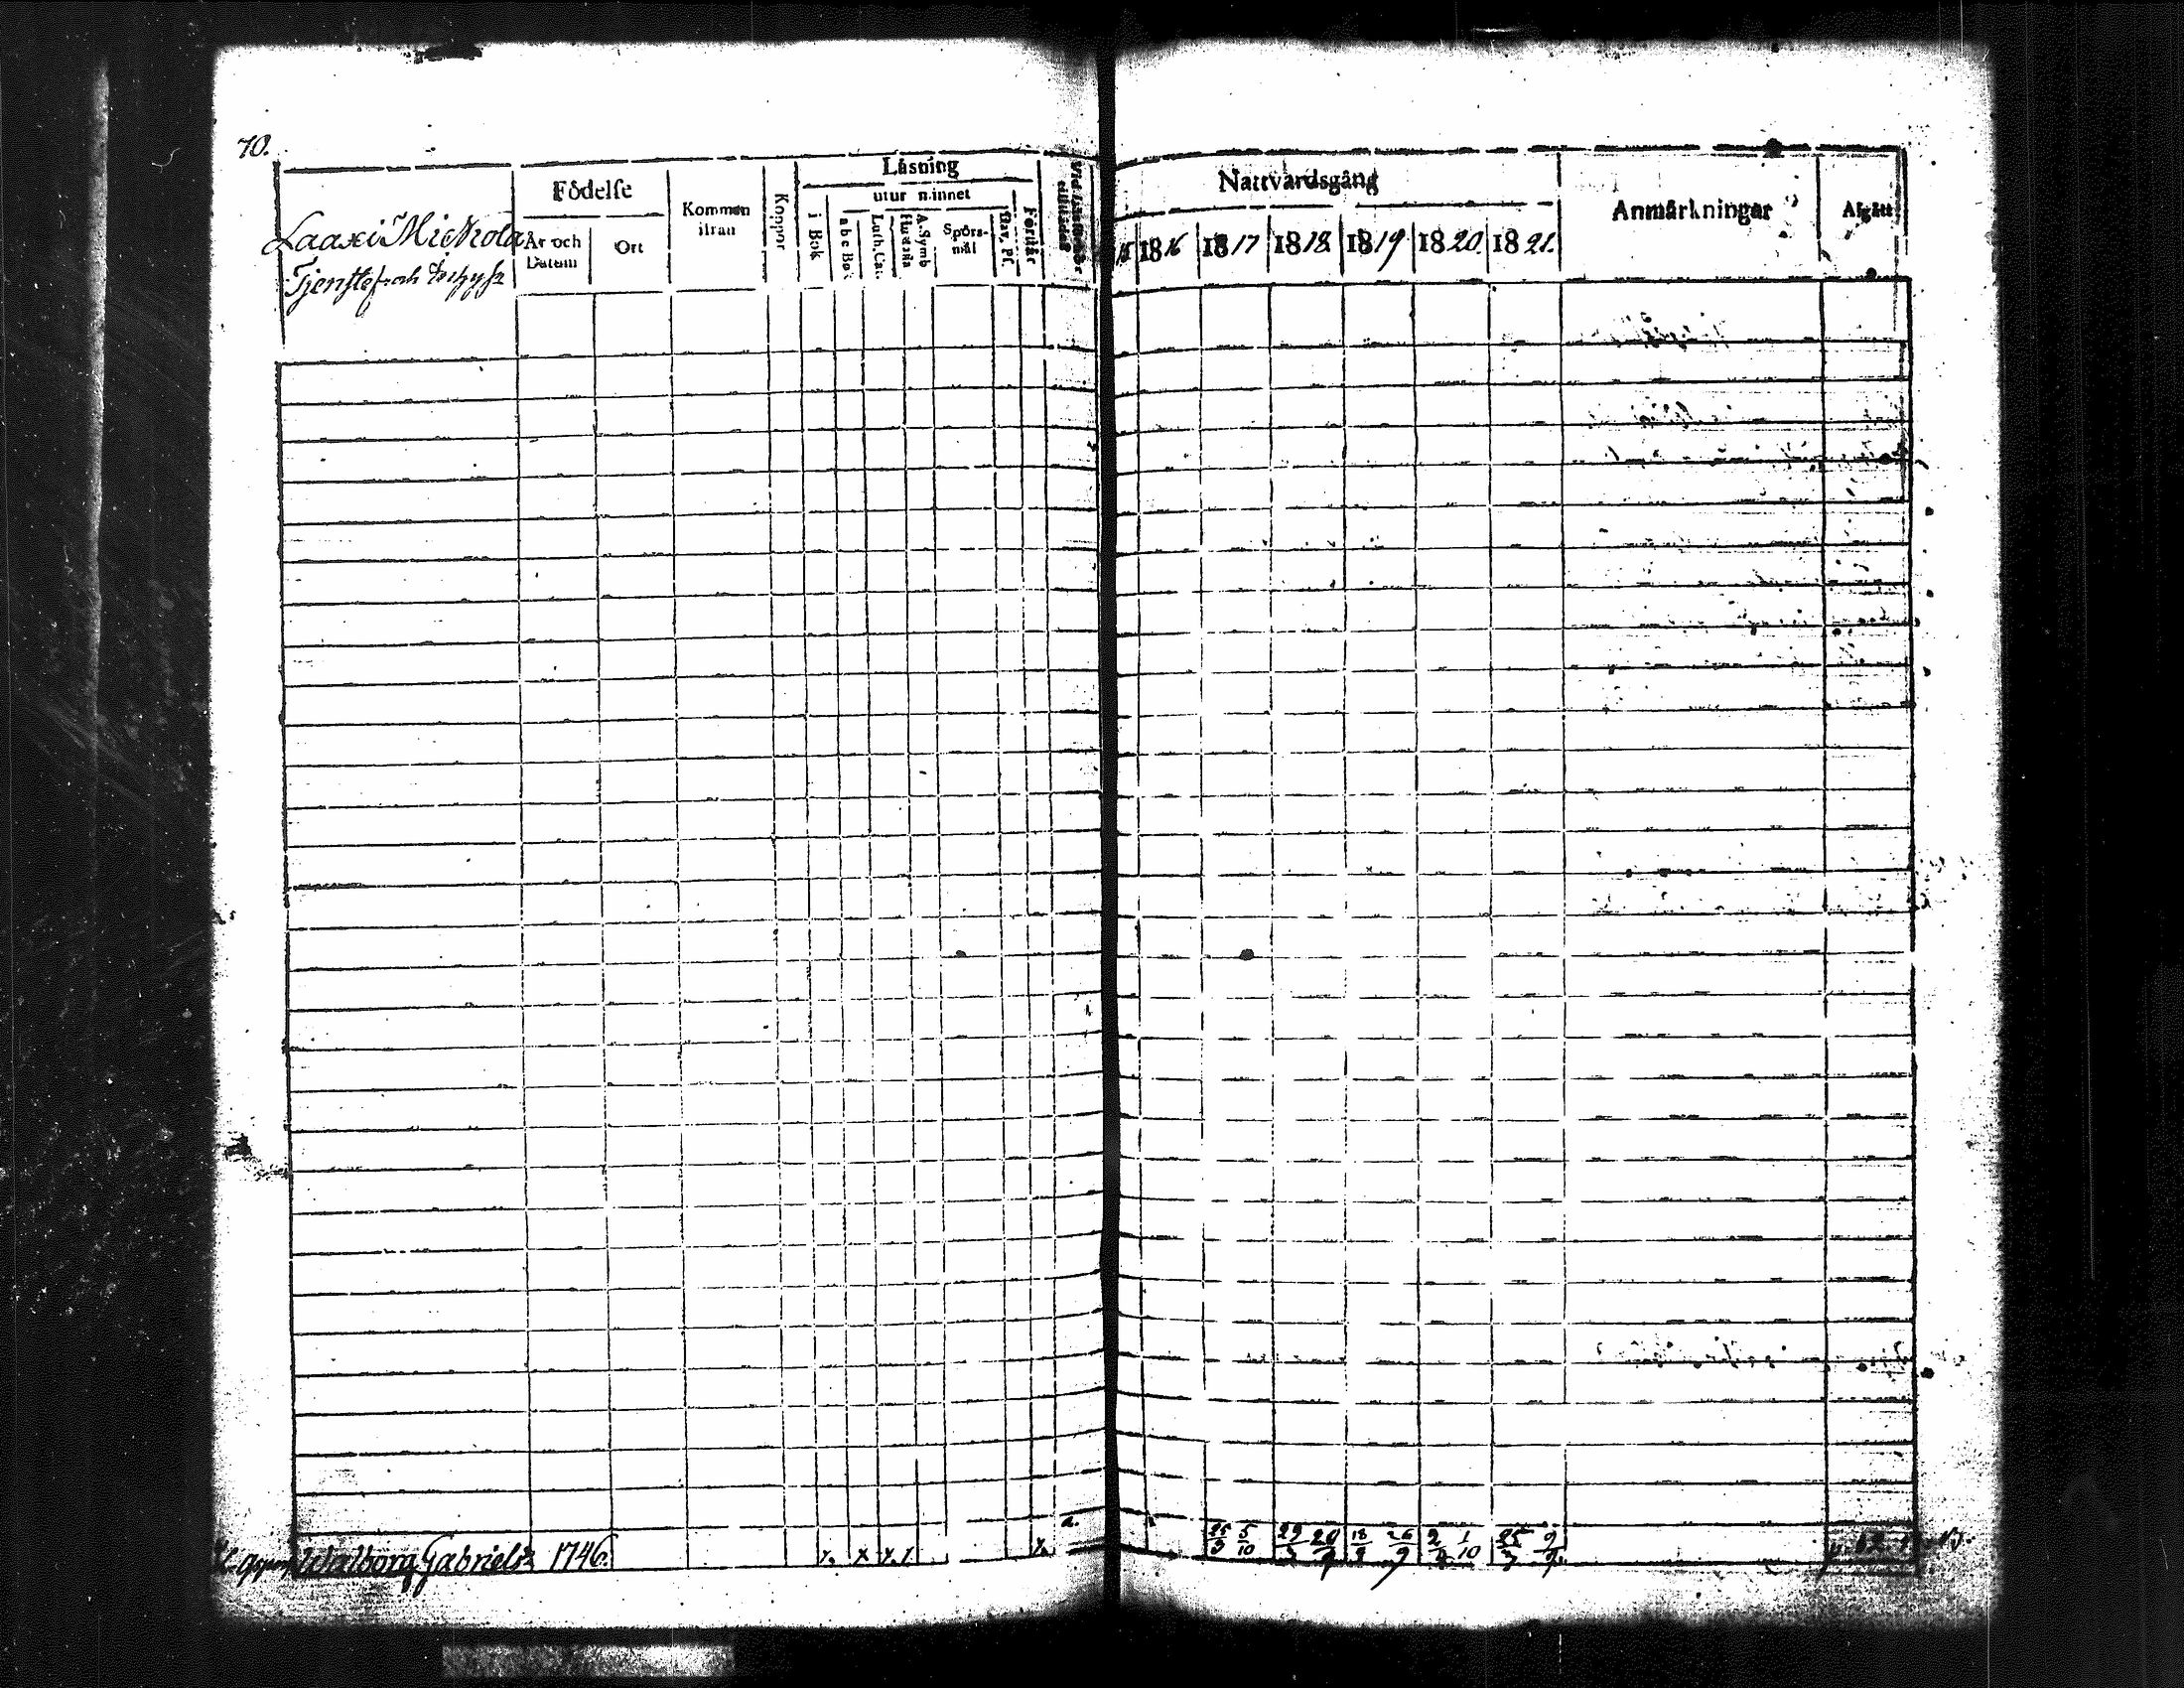 70.
Laaxi Mickola
Tjenstef. och
Födelse
År och Datum
Ort
Kommen ifrån
Koppor
Läsning
i Bok
utur minnet
a b c Bok
Luth. Cat.
Hustafla
A. Symb
Spörs-mål
Dav. Ps.
Förstår
Nattvardsgång
1816 1817 1818. 1819 1820. 1821.
Anmärkningar
Afgått
Walborg Gabrielsd. 1746. x x x x x
25/3 5/10 29/3 20/9 18/9 26/9 2/4 1/10 25/3 9/9